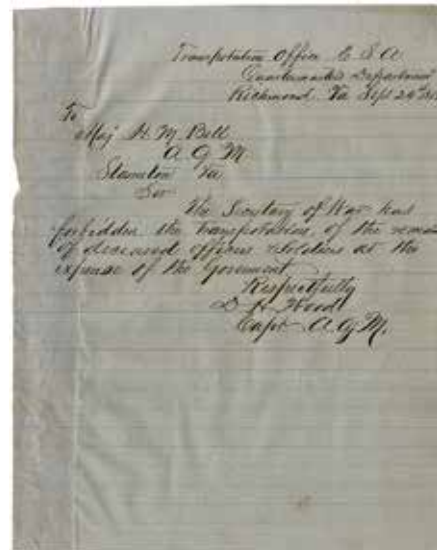 Transportation Office C S A
Quartermasters Department
Richmond Va Sept 24th
To
Maj H. M. Bell
A Q M
Staunton Va
Sir
The Secretary of War has
forbidden the transportation of the remains
of deceased officers & Soldiers at the
expense of the Government
Respectfully
D H Wood
Capt A Q M.